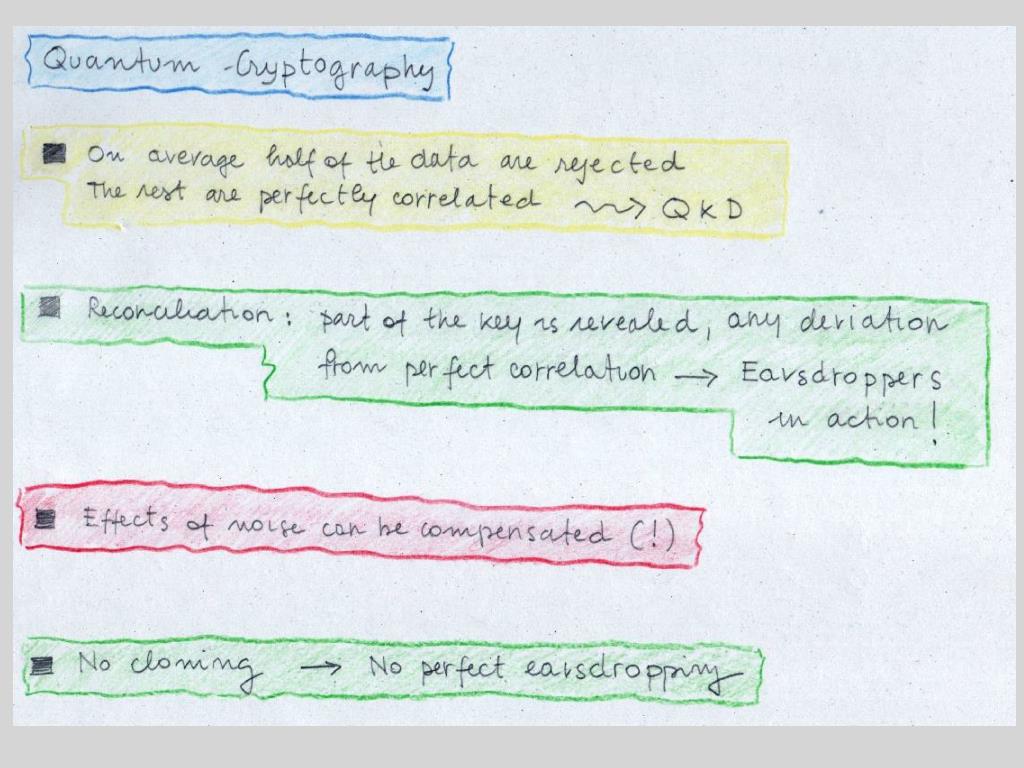 Quantum Cryptography
■ On average half of the data are rejected
The rest are perfectly correlated ⇝ QKD
■ Reconciliation: part of the key is revealed, any deviation
from perfect correlation → Eavsdroppers
in action!
■ Effects of noise can be compensated (!)
■ No cloning → No perfect eavsdropping